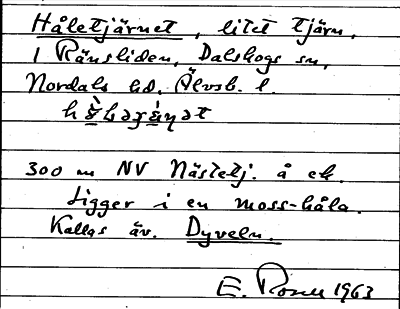 Håletjärnet, litet tjärn,
i Ränsliden, Dalskogs sn,
Nordals hd. Älvsb. l.
300 m NV Nästetj. å ek.
Ligger i en moss-håla.
Kallas äv. Dyveln.
E. Rosell 1963